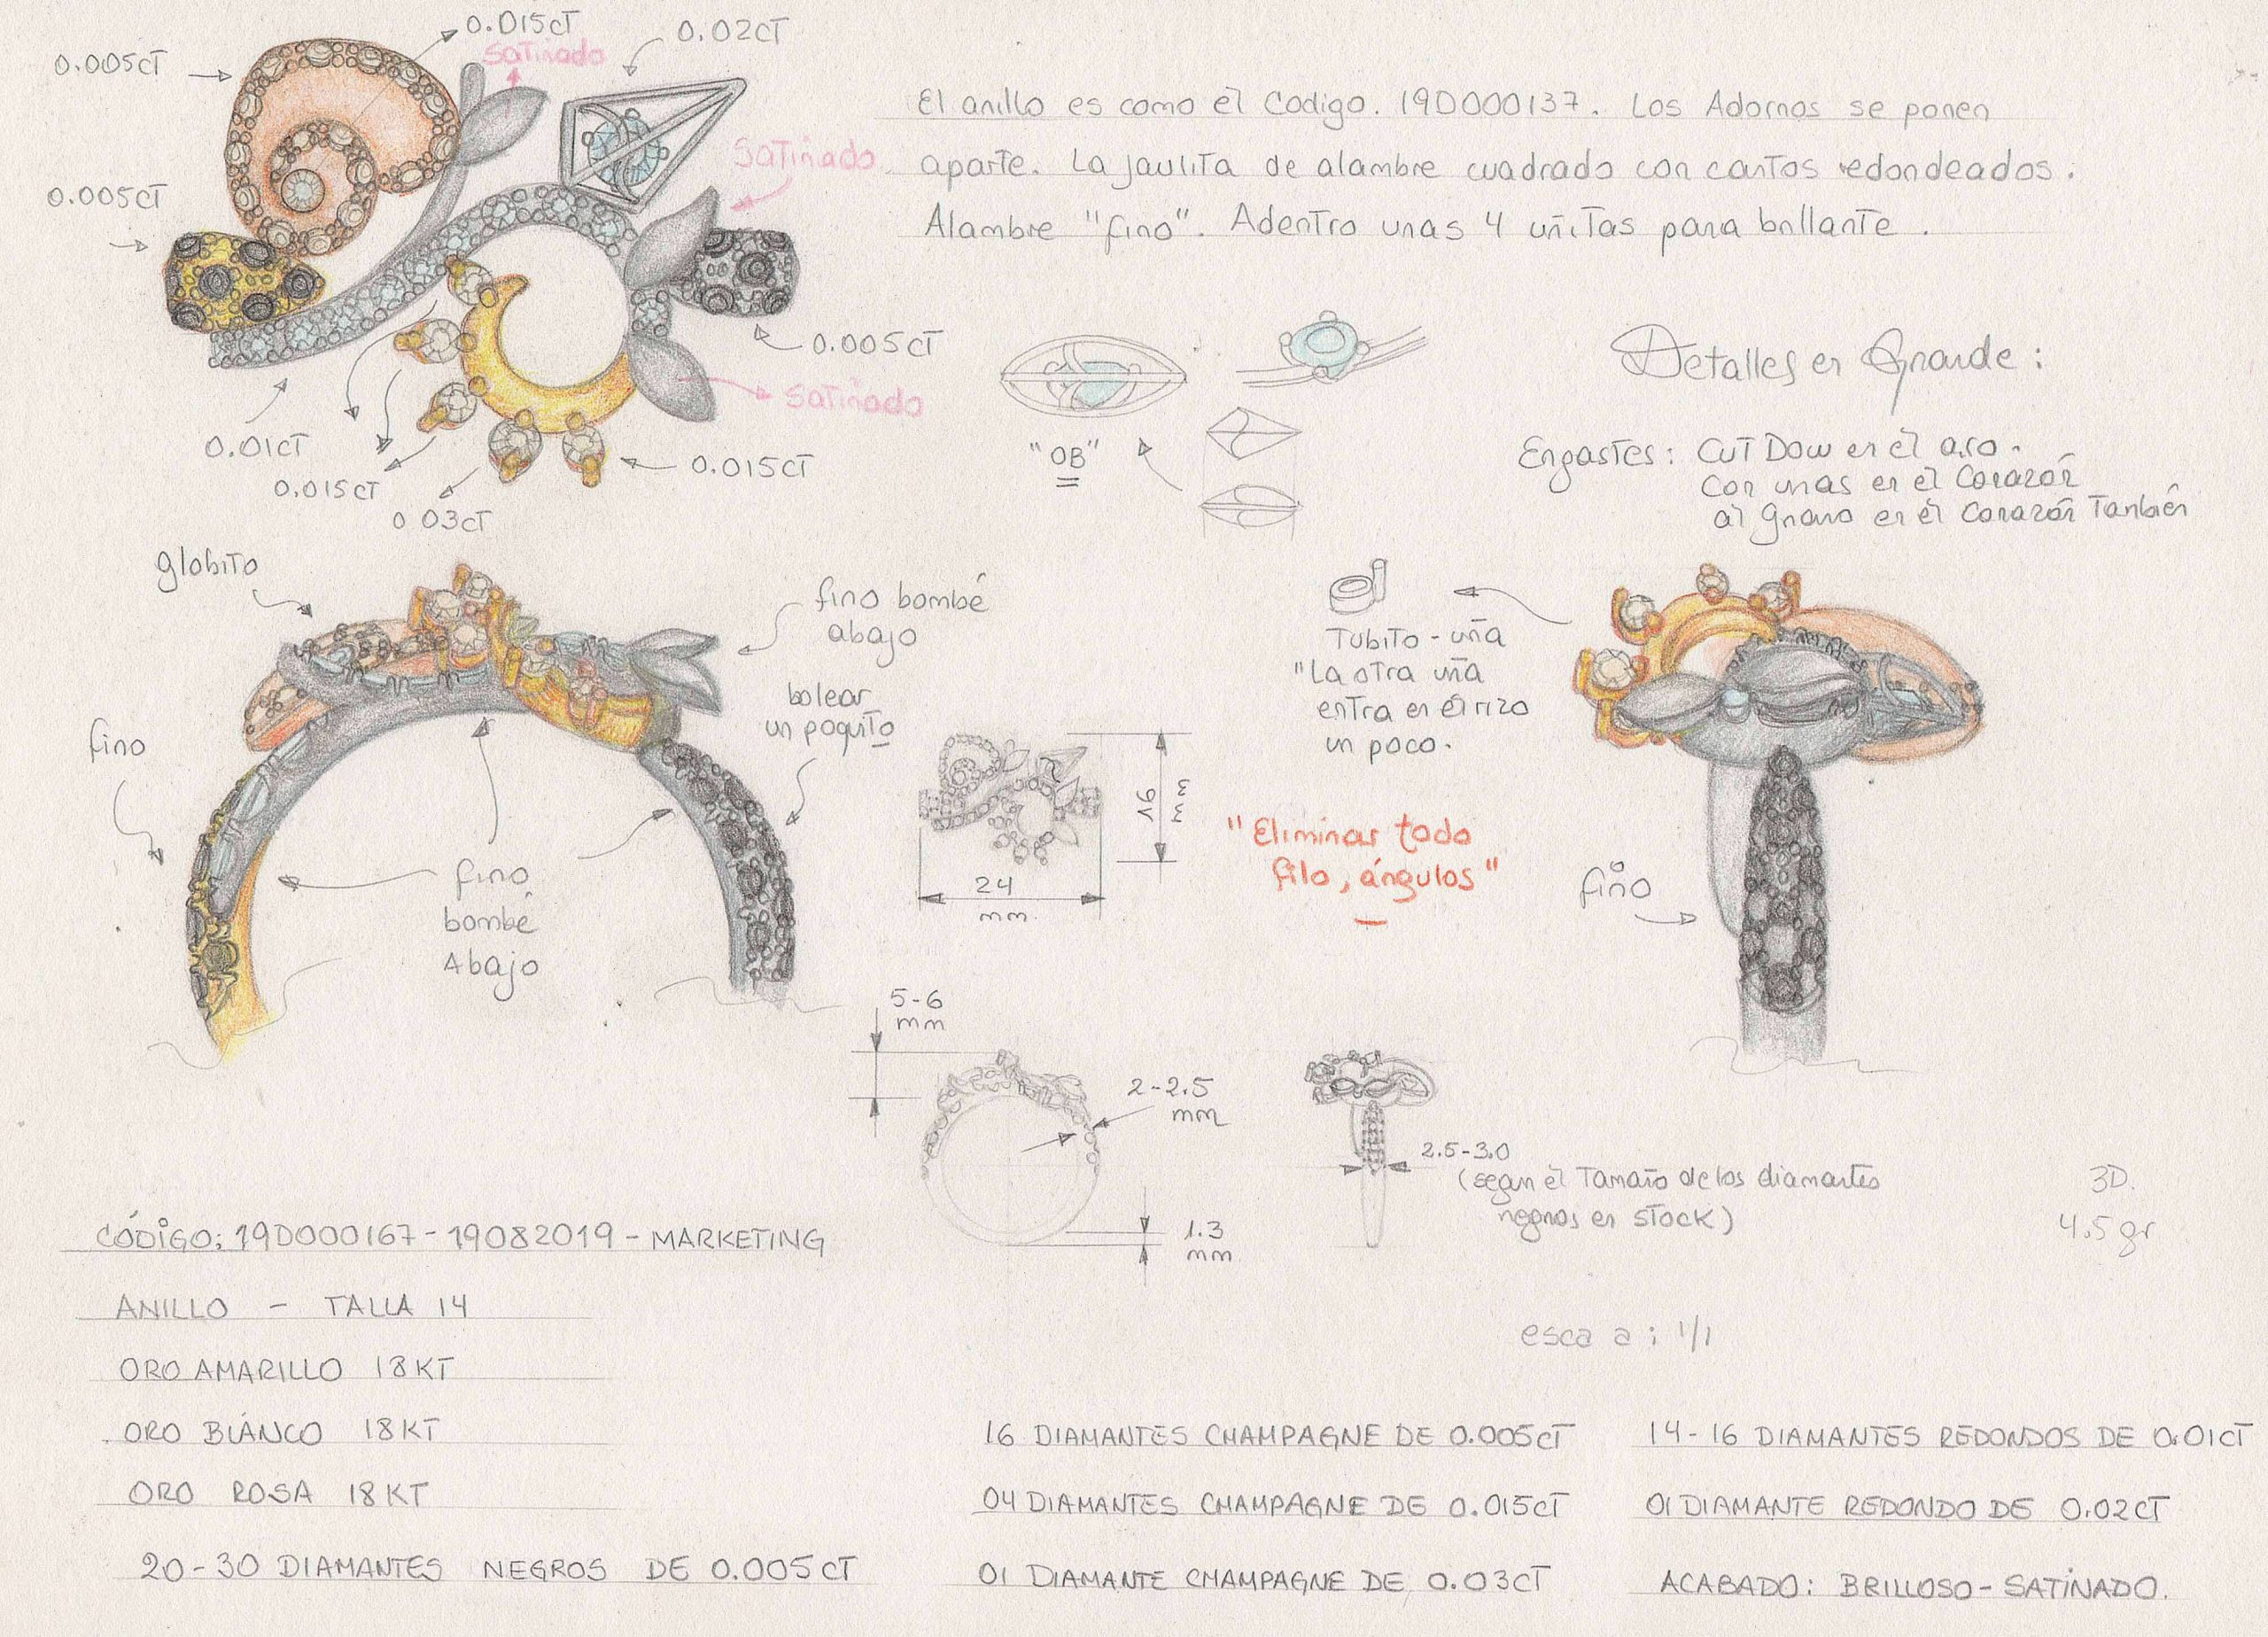 0.005CT
0.015CT
Satinado
0.02CT
Satinado
0.005CT
0.005CT
Satinado
0.01CT
0.015CT
0.03CT
0.015CT
El anillo es como el Codigo. 19D000137. Los Adornos se ponen
aparte. La jaulita de alambre cuadrado con cantos redondeados.
Alambre "fino". Adentro unas 4 uñitas para brillante.
"OB"
Detalles en Grande:
Engastes: CUT Down en el aro.
Con unas en el Corazón
al Grano en el Corazón También
globito
fino bombé
abajo
bolear
un poquito
fino
fino
bombé
Abajo
Tubito-uña
"La otra uña
entra en el rizo
un poco.
fino
16
mm
24
mm.
"Eliminar todo
filo, ángulos"
5-6
mm
2-2.5
mm
1.3
mm
2.5-3.0
(segun el Tamaño de los diamantes
negros en STOCK)
3D.
4.5 gr
CÓDIGO: 19D000167-19082019-MARKETING
ANILLO - TALLA 14
ORO AMARILLO 18KT
ORO BLANCO 18KT
ORO ROSA 18KT
20-30 DIAMANTES NEGROS DE 0.005CT
esca a: 1/1
16 DIAMANTES CHAMPAGNE DE 0.005CT
04 DIAMANTES CHAMPAGNE DE 0.015CT
01 DIAMANTE CHAMPAGNE DE 0.03CT
14-16 DIAMANTES REDONDOS DE 0.01CT
01 DIAMANTE REDONDO DE 0.02CT
ACABADO: BRILLOSO-SATINADO.